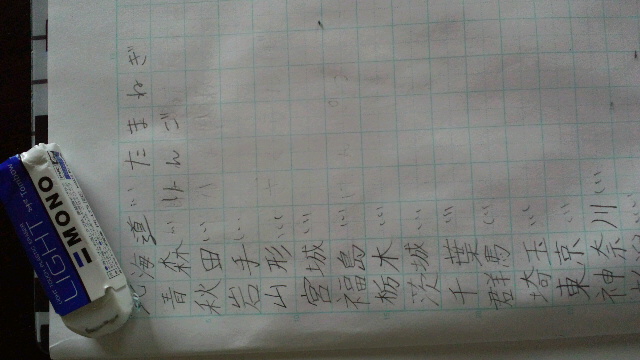 北海道…たまねぎ
青森…りんご
秋田…
岩手…
山形…
宮城…
福島…
栃木…
茨城…
千葉…
群馬…
埼玉…
東京…
神奈川…
MONO
LIGHT
by Tombow